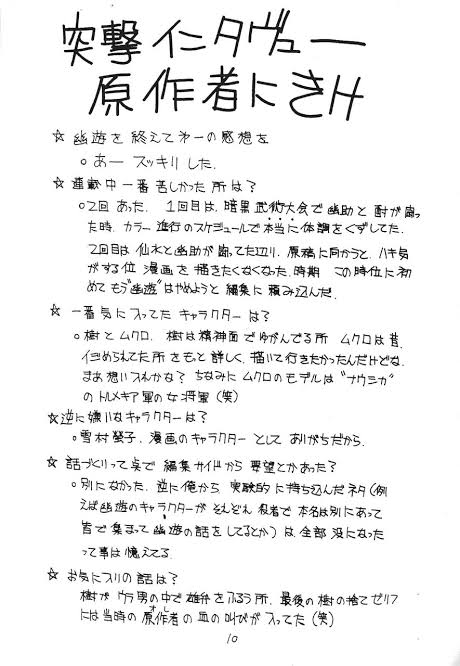 突撃インタヴュー
原作者にきけ
☆ 幽遊を終えて第一の感想を
○ あー スッキリした.
☆ 連載中一番苦しかった所は?
○2回あった. 1回目は.暗黒武術大会で幽助と酎が闘っ
た時. カラー進行のスケジュールで本当に体調をくずしてた.
2回目は仙水と幽助が闘ってた辺り. 原稿に向かうと.ハキ気
がする位 漫画を描きたくなくなった.時期 この時位に初
めてもう“幽遊”はやめようと編集に頼み込んだ.
☆ 一番気に入ってたキャラクターは?
○樹とムクロ. 樹は精神面でゆがんでる所 ムクロは昔.
イジめられてた所をもっと詳しく.描いて行きたかったんだけどな.
まあ想い入れかな? ちなみにムクロのモデルは“ナウシカ”
のトルメキア軍の女将軍(笑)
☆逆に嫌いなキャラクターは?
○雪村螢子. 漫画のキャラクターとしてありがちだから.
☆ 話づくりって点で編集サイドから要望とかあった?
○別になかった. 逆に俺から 実験的に持ち込んだネタ(例
えば幽遊のキャラクターが それぞれ 役者で本名は別にあって
皆で集まって幽遊の話をしてるとか)は 全部没になった
って事は憶えてる.
☆ お気に入りの話は?
樹がウラ男の中で雄弁をふるう所. 最後の樹の捨てゼリフ
には当時の原作者(オレ)の血の叫びが入ってた(笑)
10